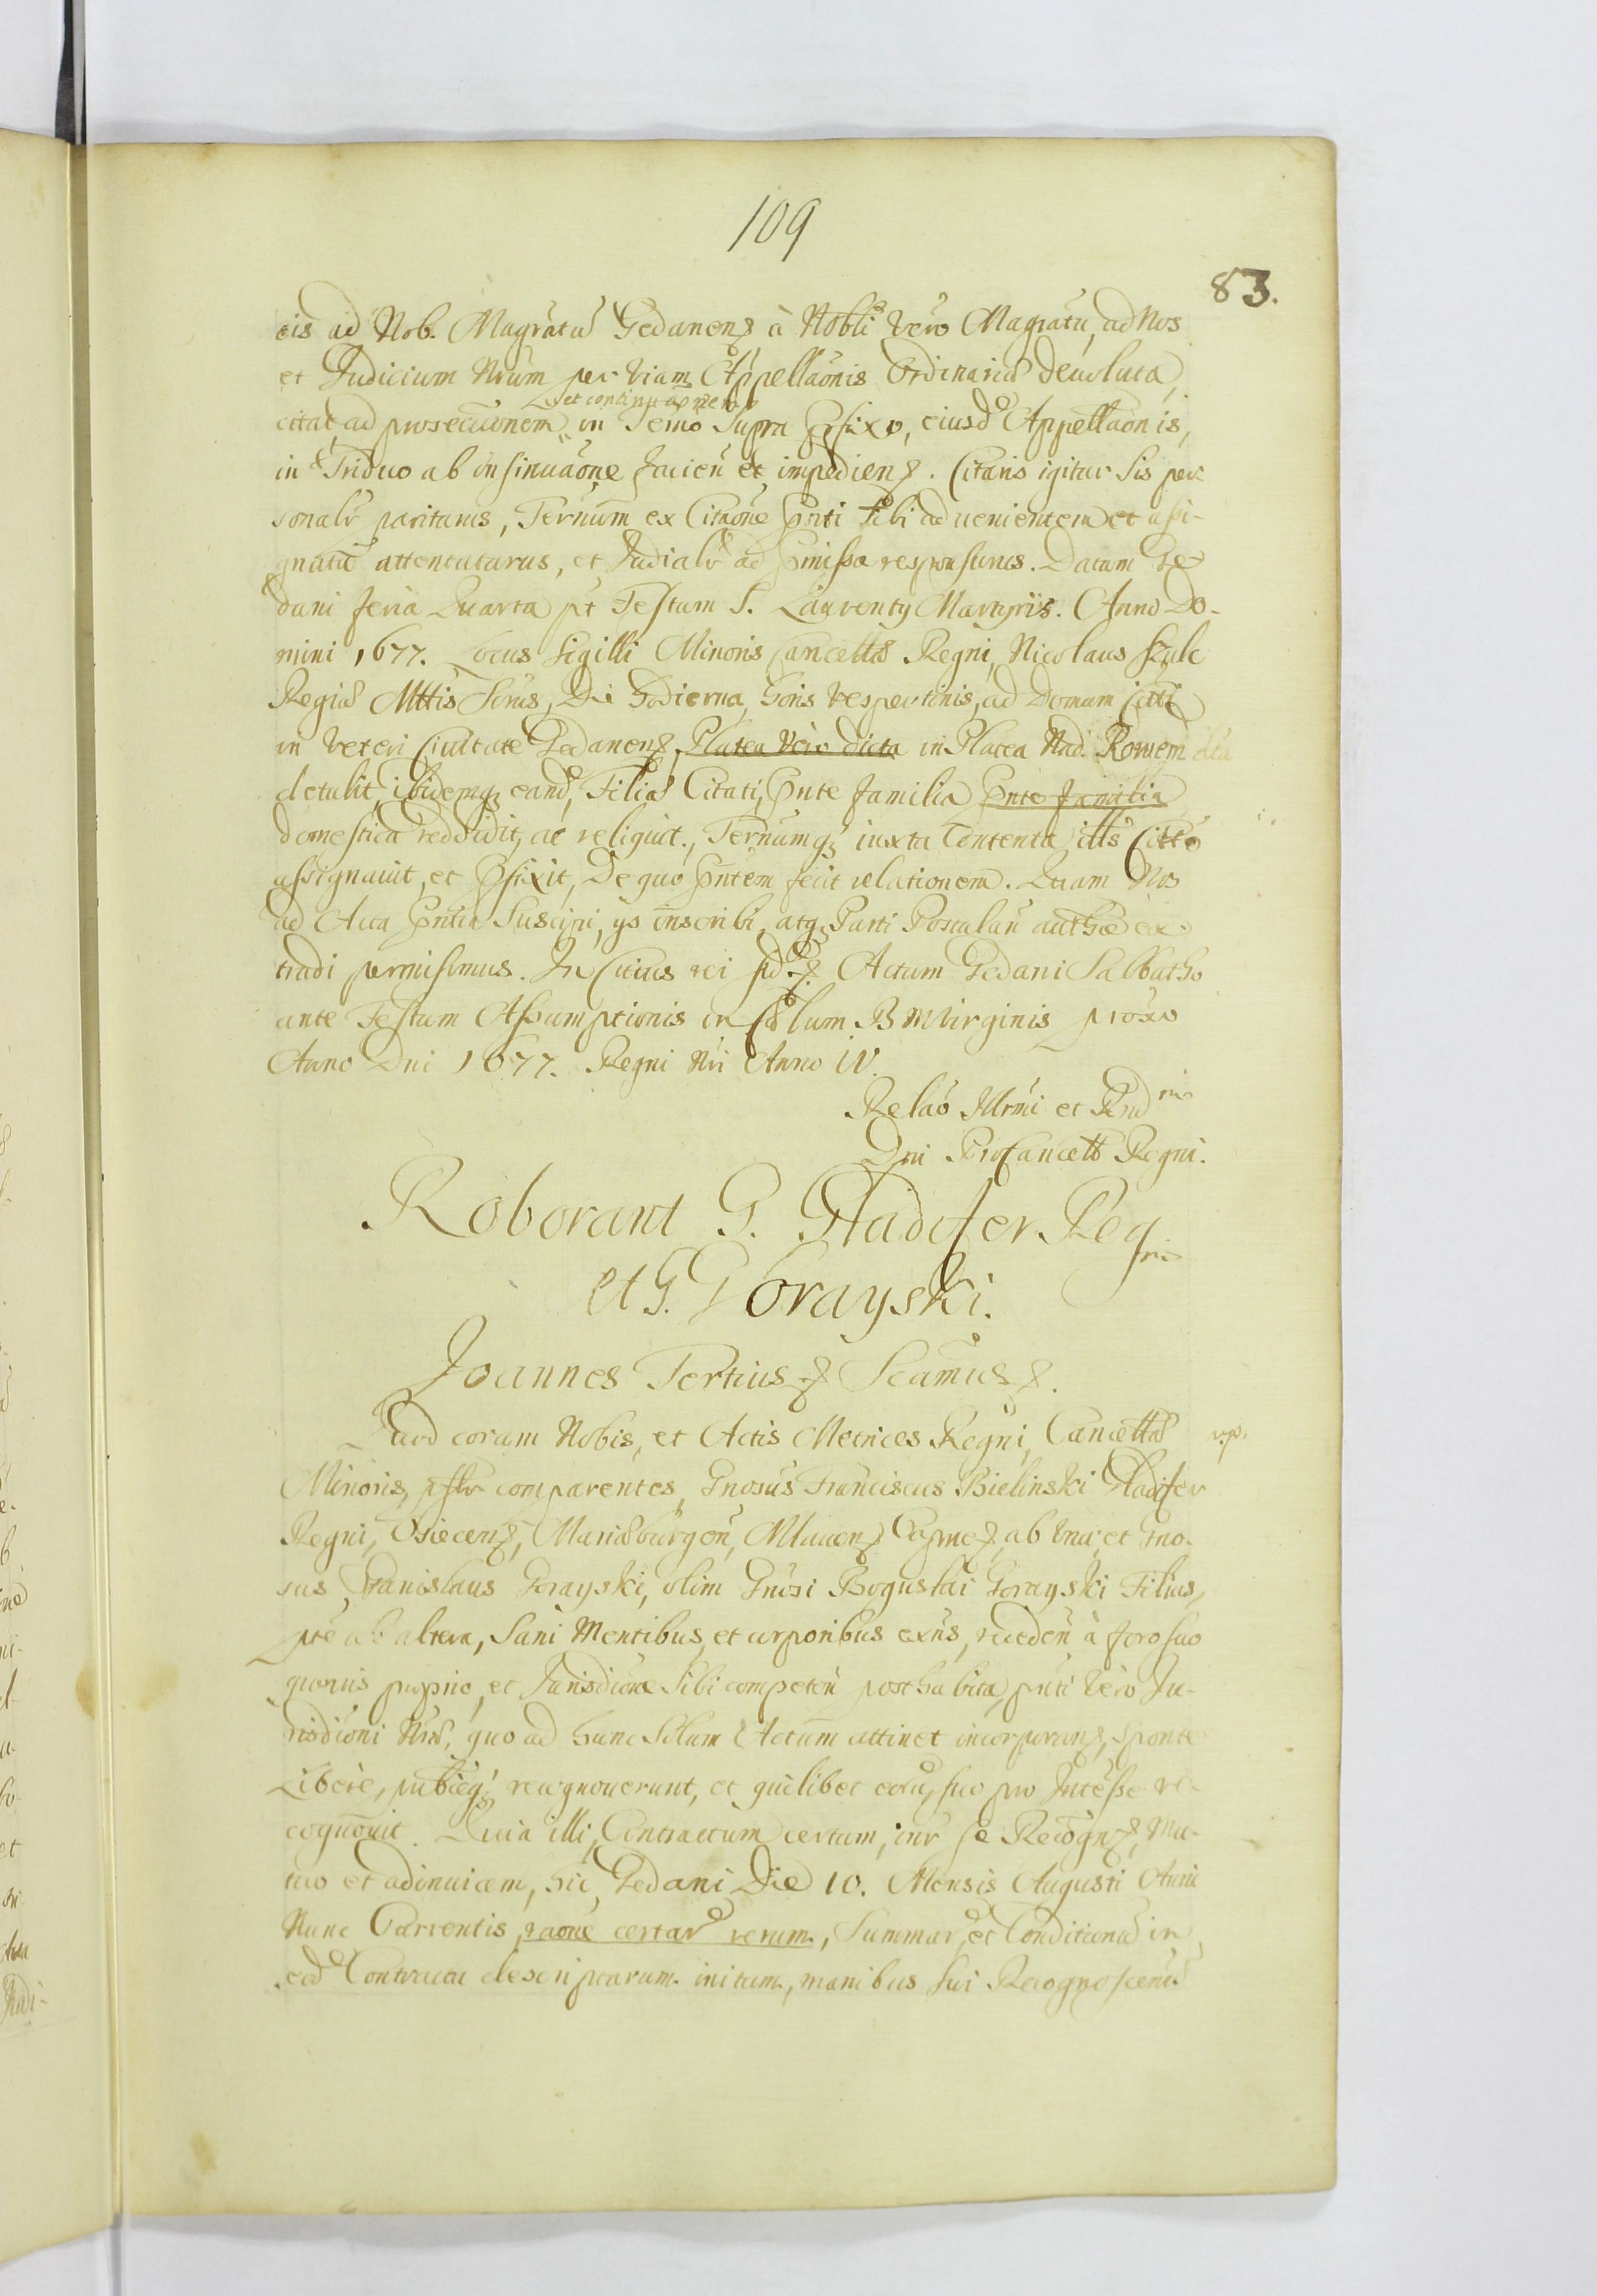 109
83.
eis ad Nob. Magratu Gedanens à Nobli vero Magratu, ad Nos
et Judicium Nrum per viam Appellaonis Ordinaria devoluta,
et continuaonem
citat, ad prosecuonem in Termo supra Pfixo, eiusd Appellaonis,
in Triduo ab insinuaone facien et impedien. Citaris igitur sis per
sonalr pariturus, Ternum ex Citaone Pnti tibi advenientem et assi-
gnatu attentaturus, et Judialr ad Pmissa responsurus. Datum Ge
dani feria Quarta pt Festum S. Laurentij Martyris. Anno Do-
mini 1677. Locus Sigilli Minoris Cancellae Regni, Nicolaus Szulc
Regiae Mttis Scrus, Die hodierna, horis vespertinis, ad Domum Citti
in veteri Civitate Gedanens, Platea vero dicta in Platea Nad. Rowem dta
detulit, ibidemq eand, Filiae Citati, Pnte familia Pnte familia
domestica reddidit, ac reliquit., Ternumq iuxta Contenta ills Citto
assignavit, et Pfixit, De quo Pntem fecit relationem. Quam Nos
ad Acta Pntia Suscipi, ys inscribi, atq Parti Postulan authce ex
tradi permisimus. In Cuius rei fid. Actum Gedani Sabbatho
ante Festum Assumptionis in Coelum B M Virginis proxo
Anno Dni 1677. Regni Nri Anno IV.
Relao Illrmi et Rnd mi
Dni ProCancell Regni.
Roborant G. Gladifer Reg
ni
et G. Gorayski.
Joannes Tertius Seamus.
Quod coram Nobis, et Actis Metrices Regni, Cancellae
r.p.
Minoris, pslr comparentes, Gnosus Franciscus Bielinski Gladifer
Regni, Osiecens, Mariaeburgen, Mlavens Capneus, ab una, et Gno-
sus Stanislaus Gorayski, olim Gnosi Boguslai Gorayski Filius,
pte ab altera, Sani Mentibus, et corporibus exns, receden à foro suo
quovis proprio, et Jurisdione sibi competen posthabita, pnti vero Ju-
risdioni Nrae, quo ad hunc Solum Actum attinet incorporans, sponte
Libere, publiceq recognoverunt, et quilibet eoru, suo pro Intesse re-
cognovit. Quia illi, Contractum certum, inr se Recogn, Mu-
tuo et adinvicem, hic Gedani Die 10. Mensis Augusti Anni
Nunc Currentis, raone certar rerum., Summar, et Conditionu in
eod Contractu descriptarum. initum., manibus sui Recognoscentiu